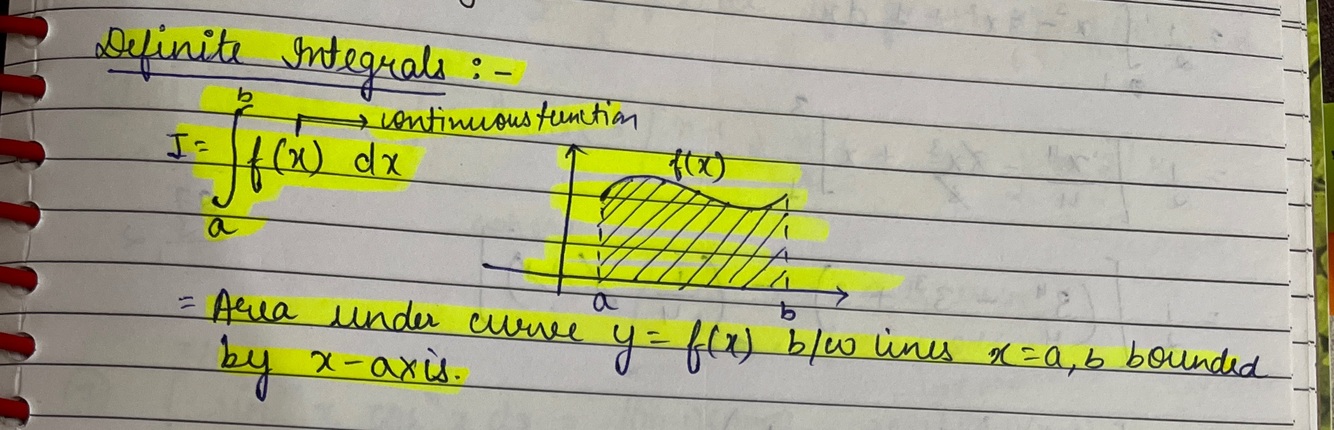 Definite Integrals :-
b
→ continuous function
I = ∫ f(x) dx
a
f(x)
a b
= Area under curve y = f(x) b/w lines x = a, b bounded
by x-axis.